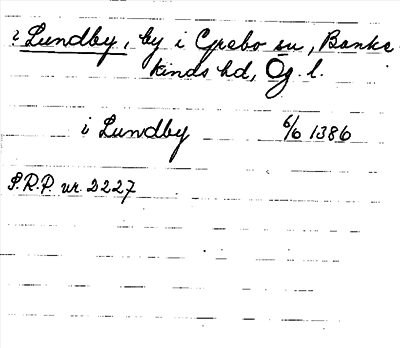 ? Lundby, by i Grebo sn, Banke-
kinds hd, Ög. l.
i Lundby 6/6 1386
S.R.P. nr. 2227